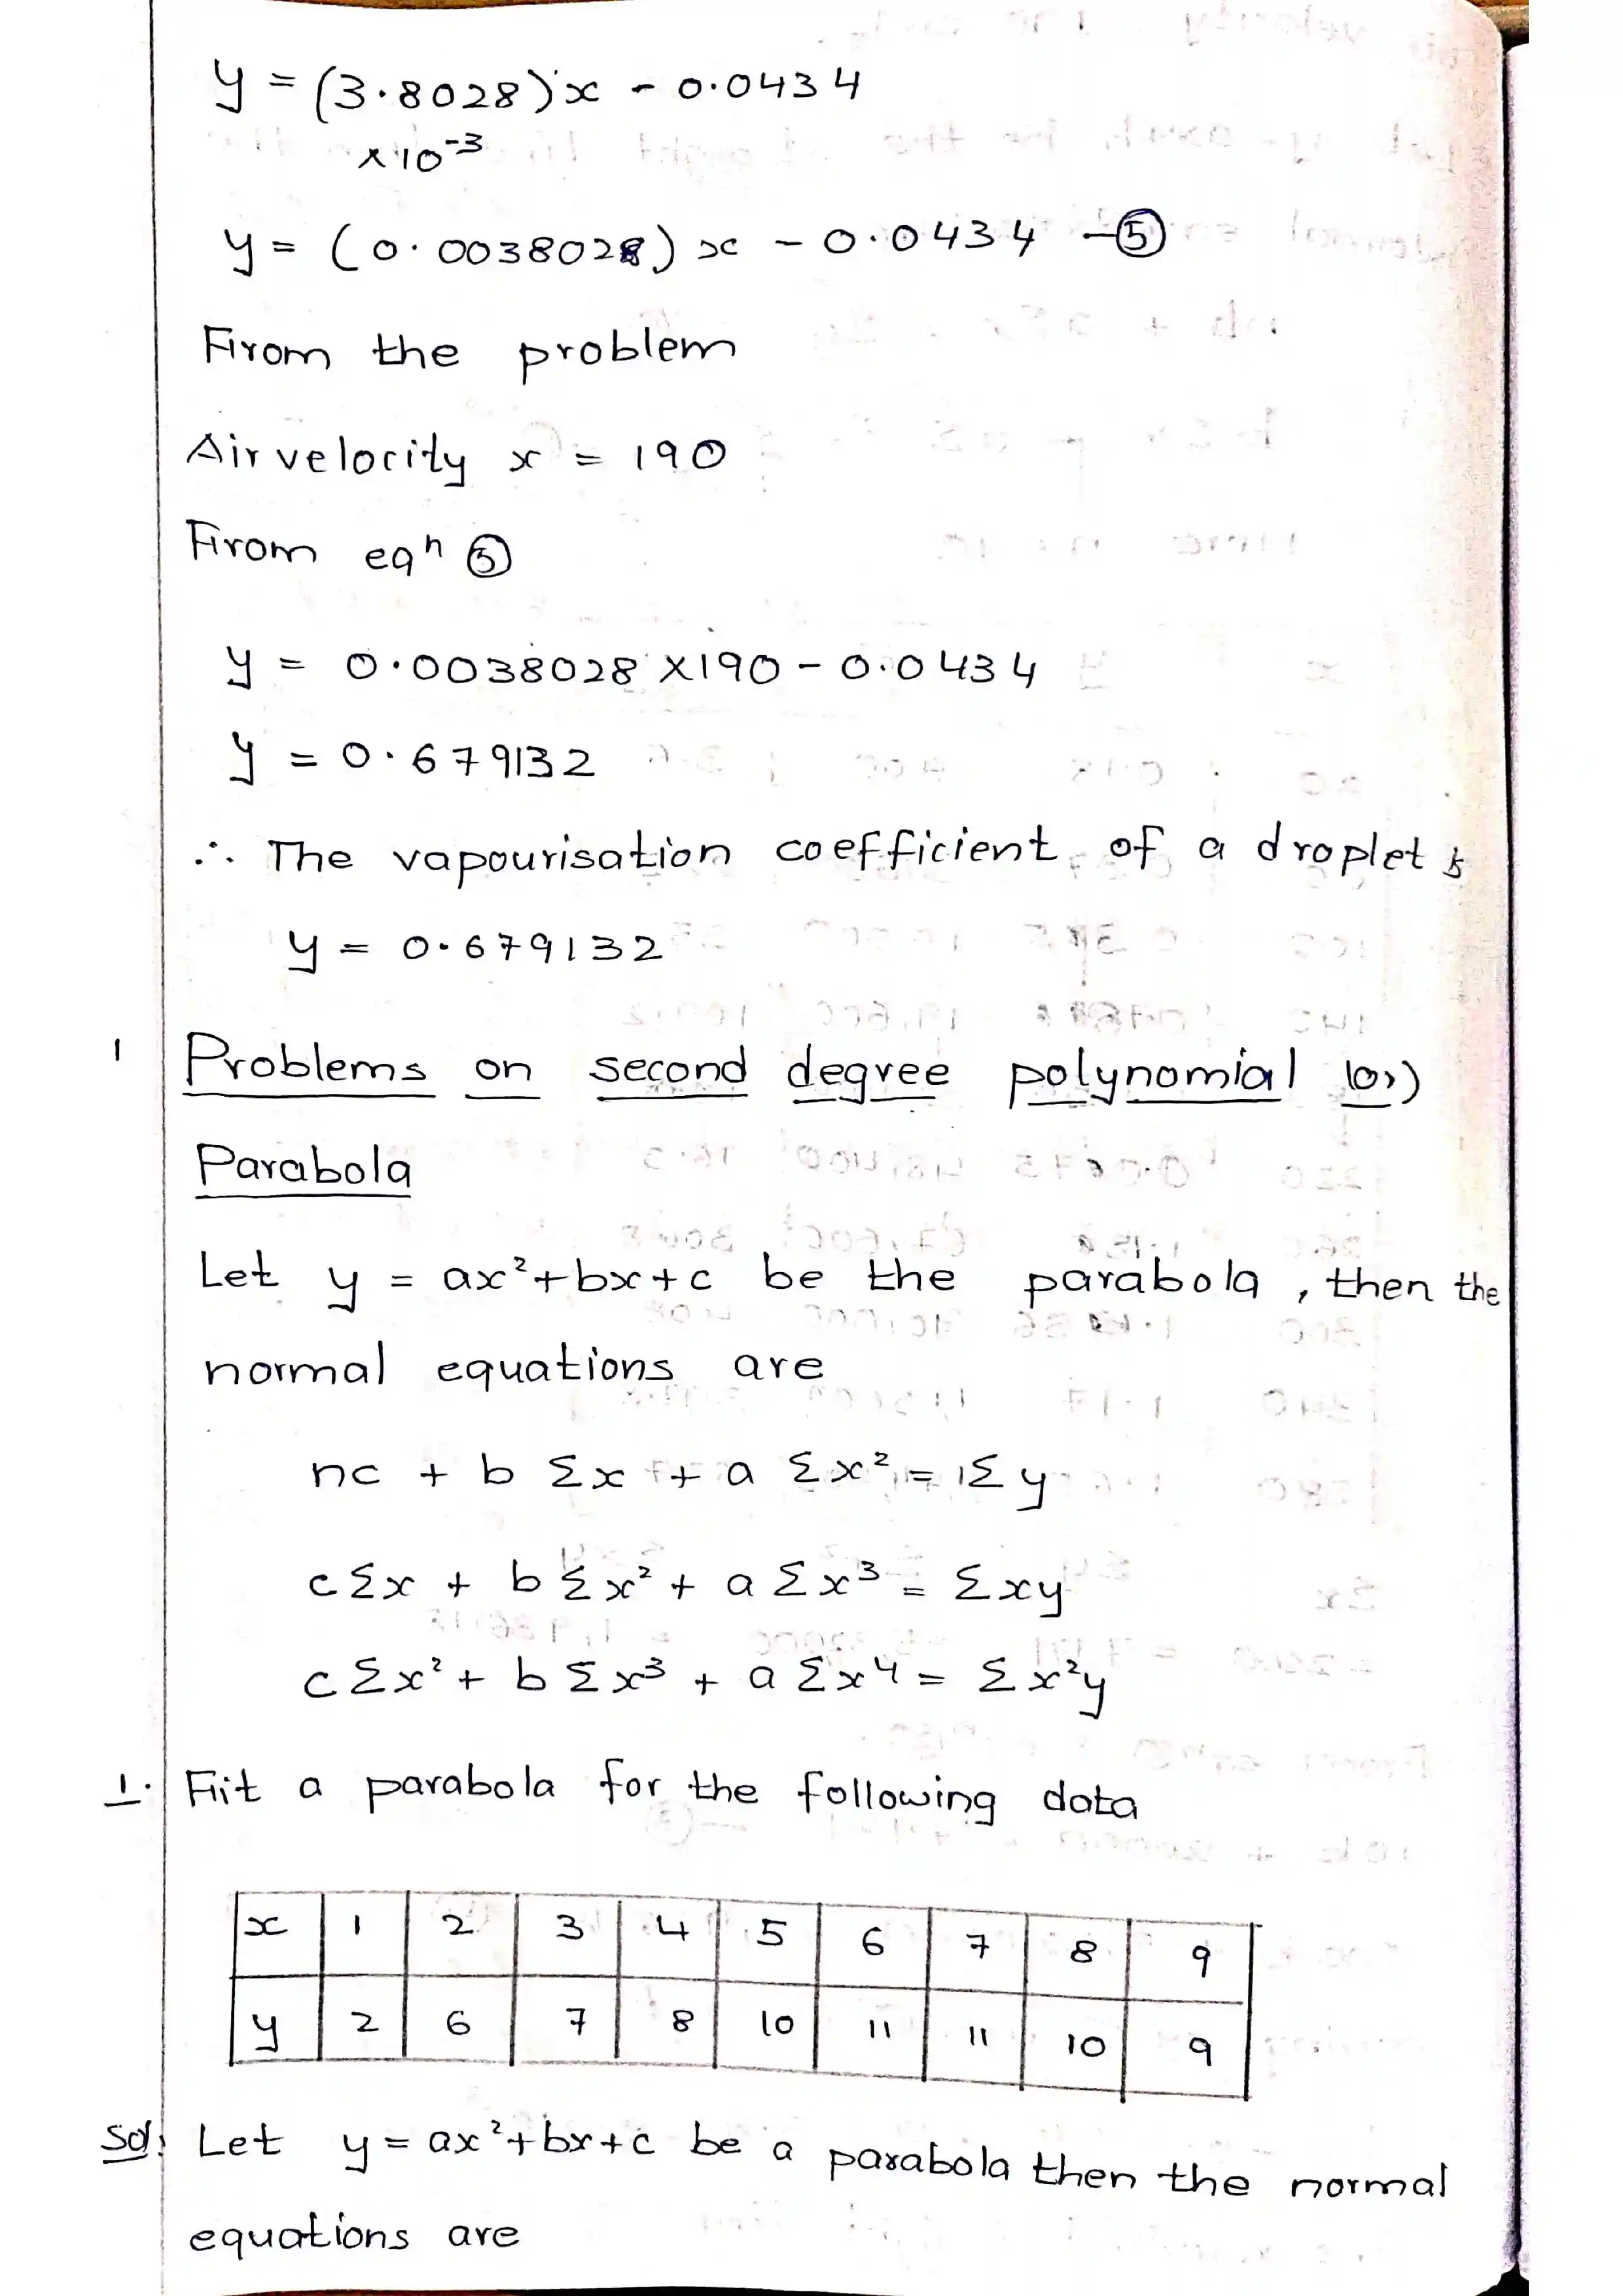 y = (3.8028)x - 0.0434
×10⁻³
y = (0.0038028)x - 0.0434 -⑤
From the problem
Air velocity x = 190
From eqⁿ ⑤
y = 0.0038028 ×190 - 0.0434
y = 0.679132
∴ The vapourisation coefficient of a droplet is
y = 0.679132
1 Problems on second degree polynomial (or)
Parabola
Let y = ax²+bx+c be the parabola, then the
normal equations are
nc + b Σx + a Σx² = Σy
cΣx + bΣx² + aΣx³ = Σxy
cΣx² + bΣx³ + aΣx⁴ = Σx²y
1. Fit a parabola for the following data
x 1 2 3 4 5 6 7 8 9
y 2 6 7 8 10 11 11 10 9
Sol: Let y = ax²+bx+c be a parabola then the normal
equations are